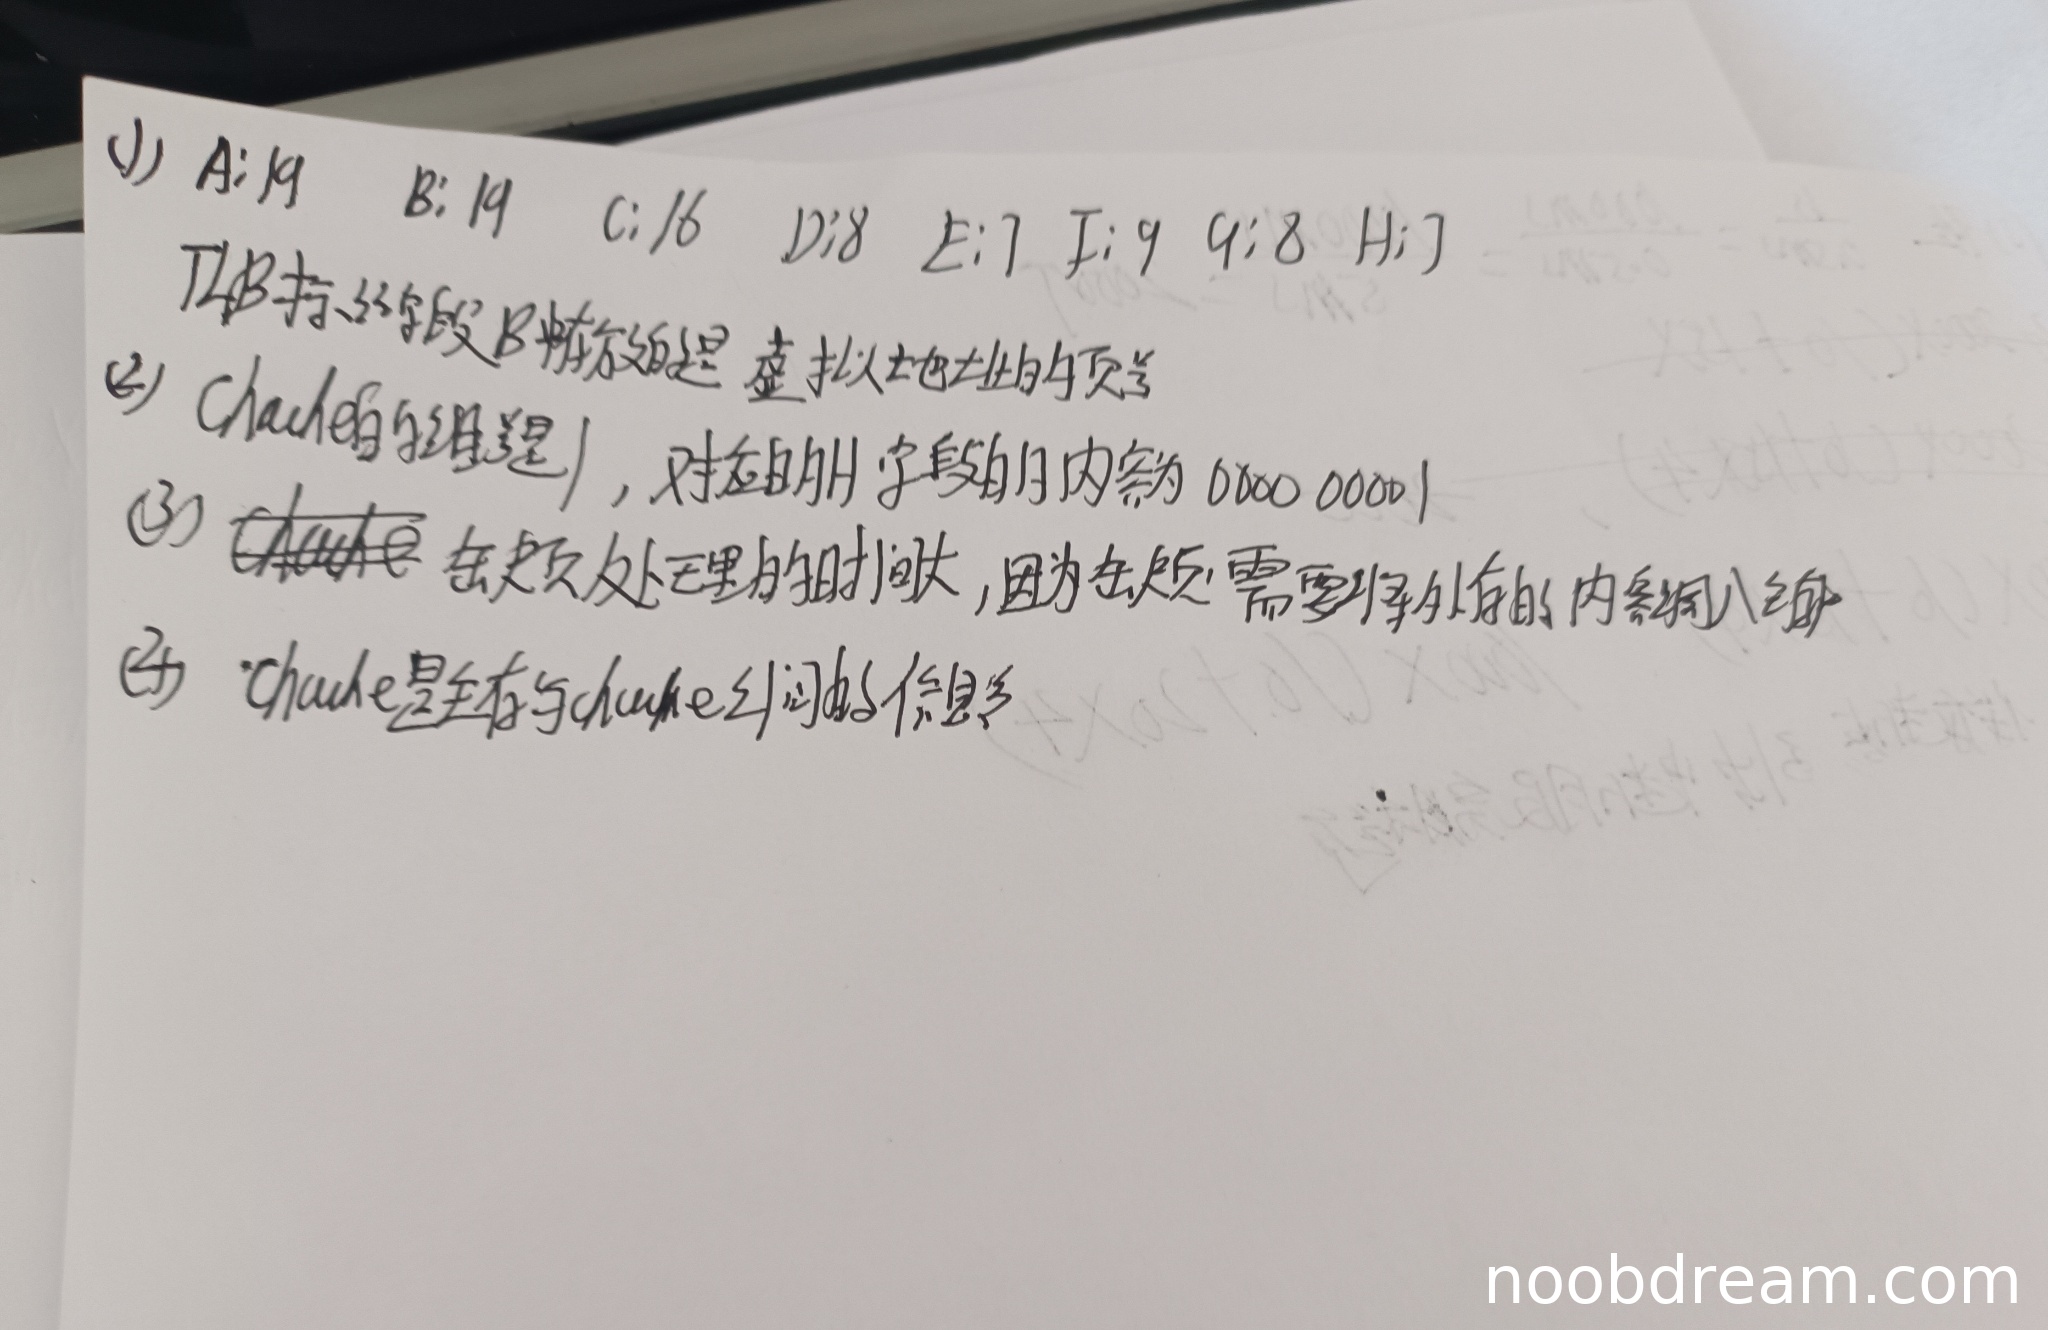 (1) A:19 B:19 C:16 D:8 E:7 I:9 G:8 H:7
TLB 标记字段B中存放的是 虚拟地址的页号
(2) Chache的组号是1，对应的H字段的内容为 0000 00001
(3) 缺页处理的时间大，因为缺页需要将外存的内容调入
(4) Chache是主存与chache之间的信息
noobdream.com